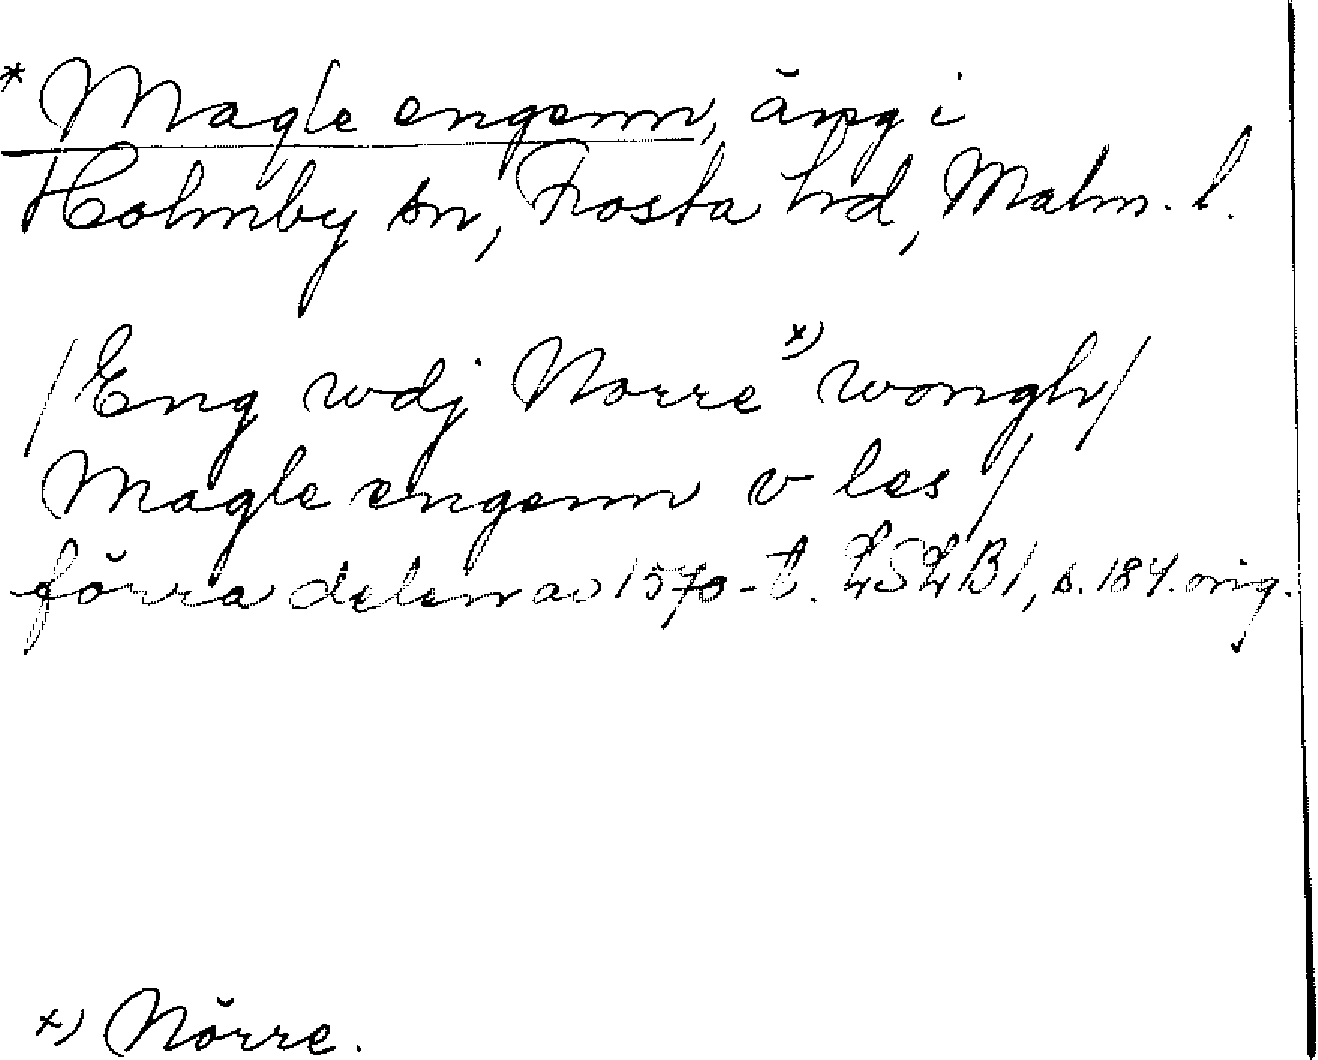 * Magle engenn, äng i
Holmby sn, Frosta hd, Malm. l.
/Eng wdj Norre x) wongh/
Magle engenn v les/
förra delen av 1570-t. LSLB1, s. 184. orig.
x) Nörre.